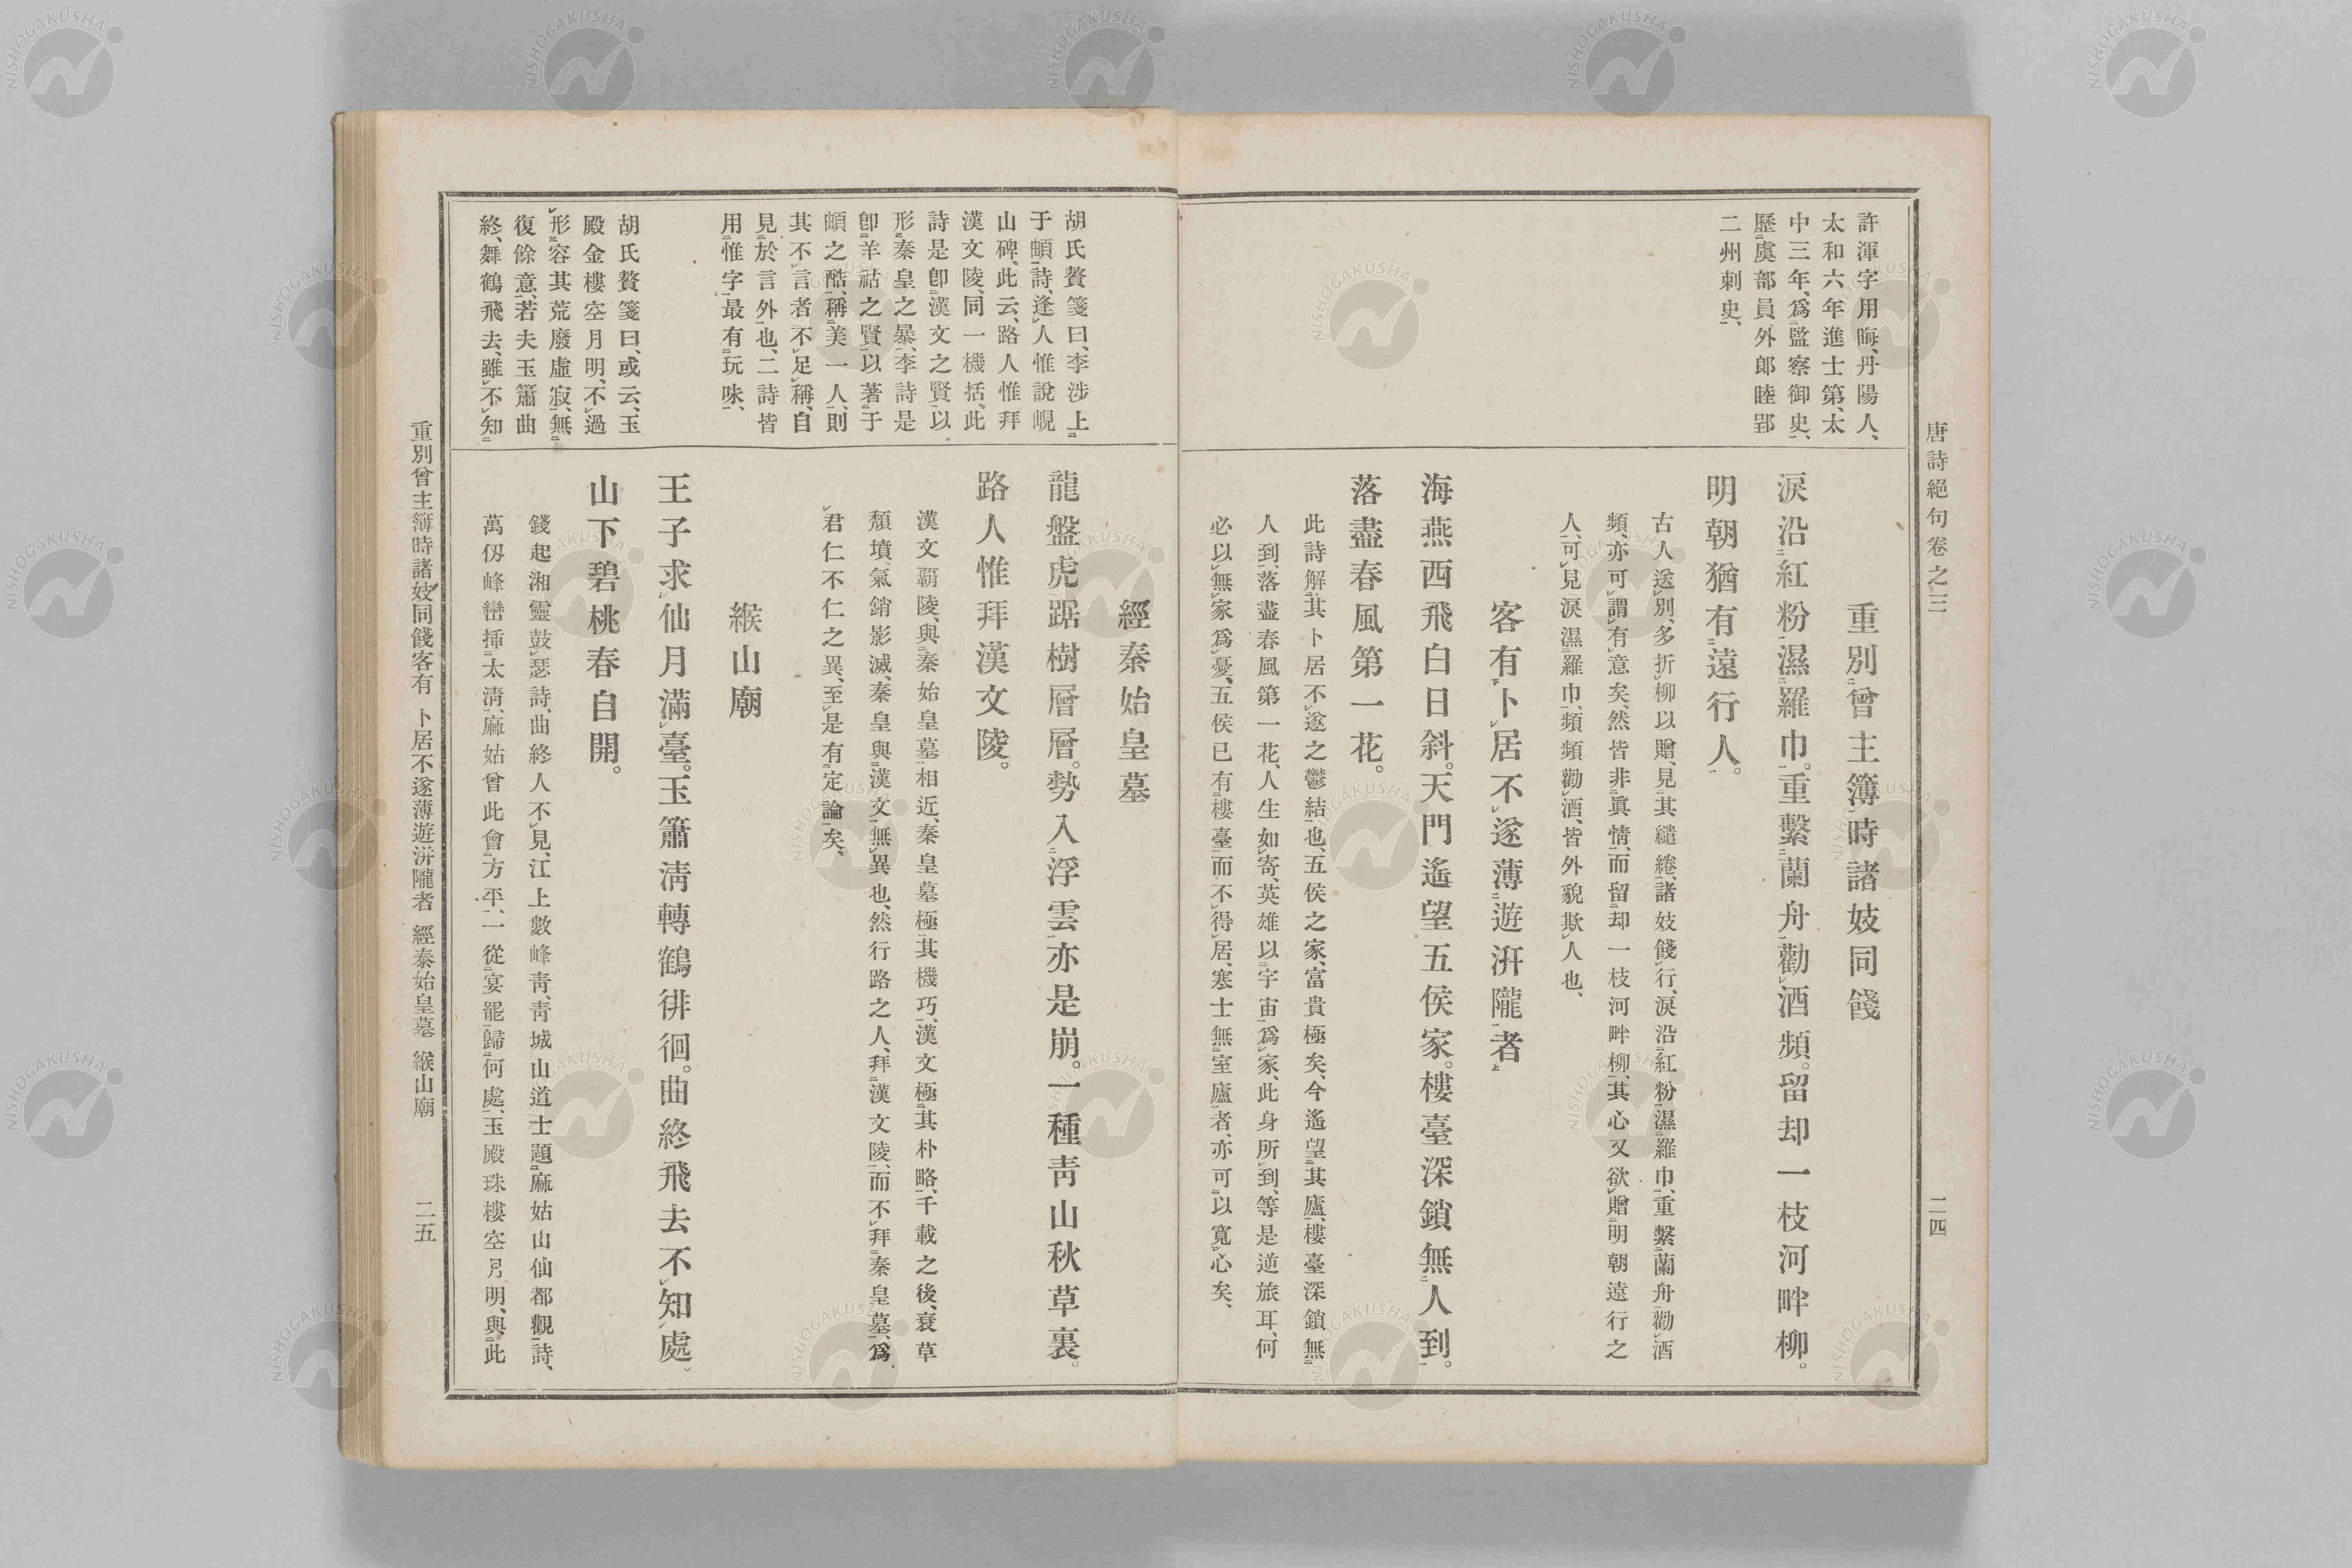 唐詩絕句卷之三
二四
許渾字用晦、丹陽人、
太和六年進士第、太
中三年、爲監察御史、
歷虞部員外郎睦郢
二州刺史、
重別曾主簿時諸妓同餞
淚沿紅粉濕羅巾。重繫蘭舟勸酒頻。留却一枝河畔柳。
明朝猶有遠行人。
古人送別、多折柳以贈、見其繾綣、諸妓餞行、淚沿紅粉濕羅巾、重繫蘭舟勸酒
頻、亦可謂有意矣、然皆非眞情、而留却一枝河畔柳、其心又欲贈明朝遠行之
人、可見淚濕羅巾、頻頻勸酒、皆外貌欺人也、
客有卜居不遂薄遊汧隴者
海燕西飛白日斜。天門遙望五侯家。樓臺深鎖無人到。
落盡春風第一花。
此詩解其卜居不遂之鬱結也、五侯之家、富貴極矣、今遙望其廬、樓臺深鎖無
人到、落盡春風第一花、人生如寄、英雄以宇宙爲家、此身所到、等是逆旅耳、何
必以無家爲憂、五侯已有樓臺而不得居、寒士無室廬者、亦可以寬心矣、
胡氏贅箋曰、李涉上
于頔詩、逢人惟說峴
山碑、此云、路人惟拜
漢文陵、同一機括、此
詩是卽漢文之賢以
形秦皇之暴、李詩是
卽羊祜之賢以著于
頔之酷、稱美一人、則
其不言者不足稱、自
見於言外也、二詩皆
用惟字、最有玩味、
經秦始皇墓
龍盤虎踞樹層層。勢入浮雲亦是崩。一種靑山秋草裏。
路人惟拜漢文陵。
漢文覇陵、與秦始皇墓相近、秦皇墓極其機巧、漢文極其朴略、千載之後、衰草
頹墳、氣銷影滅、秦皇與漢文無異也、然行路之人、拜漢文陵、而不拜秦皇墓、爲
君仁不仁之異、至是有定論矣、
胡氏贅箋曰、或云、玉
殿金樓空月明、不過
形容其荒廢虛寂、無
復餘意、若夫玉簫曲
終、舞鶴飛去、雖不知
緱山廟
王子求仙月滿臺。玉簫淸轉鶴徘徊。曲終飛去不知處。
山下碧桃春自開。
錢起湘靈鼓瑟詩、曲終人不見、江上數峰靑、靑城山道士題麻姑山仙都觀詩、
萬仭峰巒揷太淸、麻姑曾此會方平、一從宴罷歸何處、玉殿珠樓空月明、與此
重別曾主簿時諸妓同餞客有 卜居不遂薄遊汧隴者 經泰始皇墓 緱山廟
二五